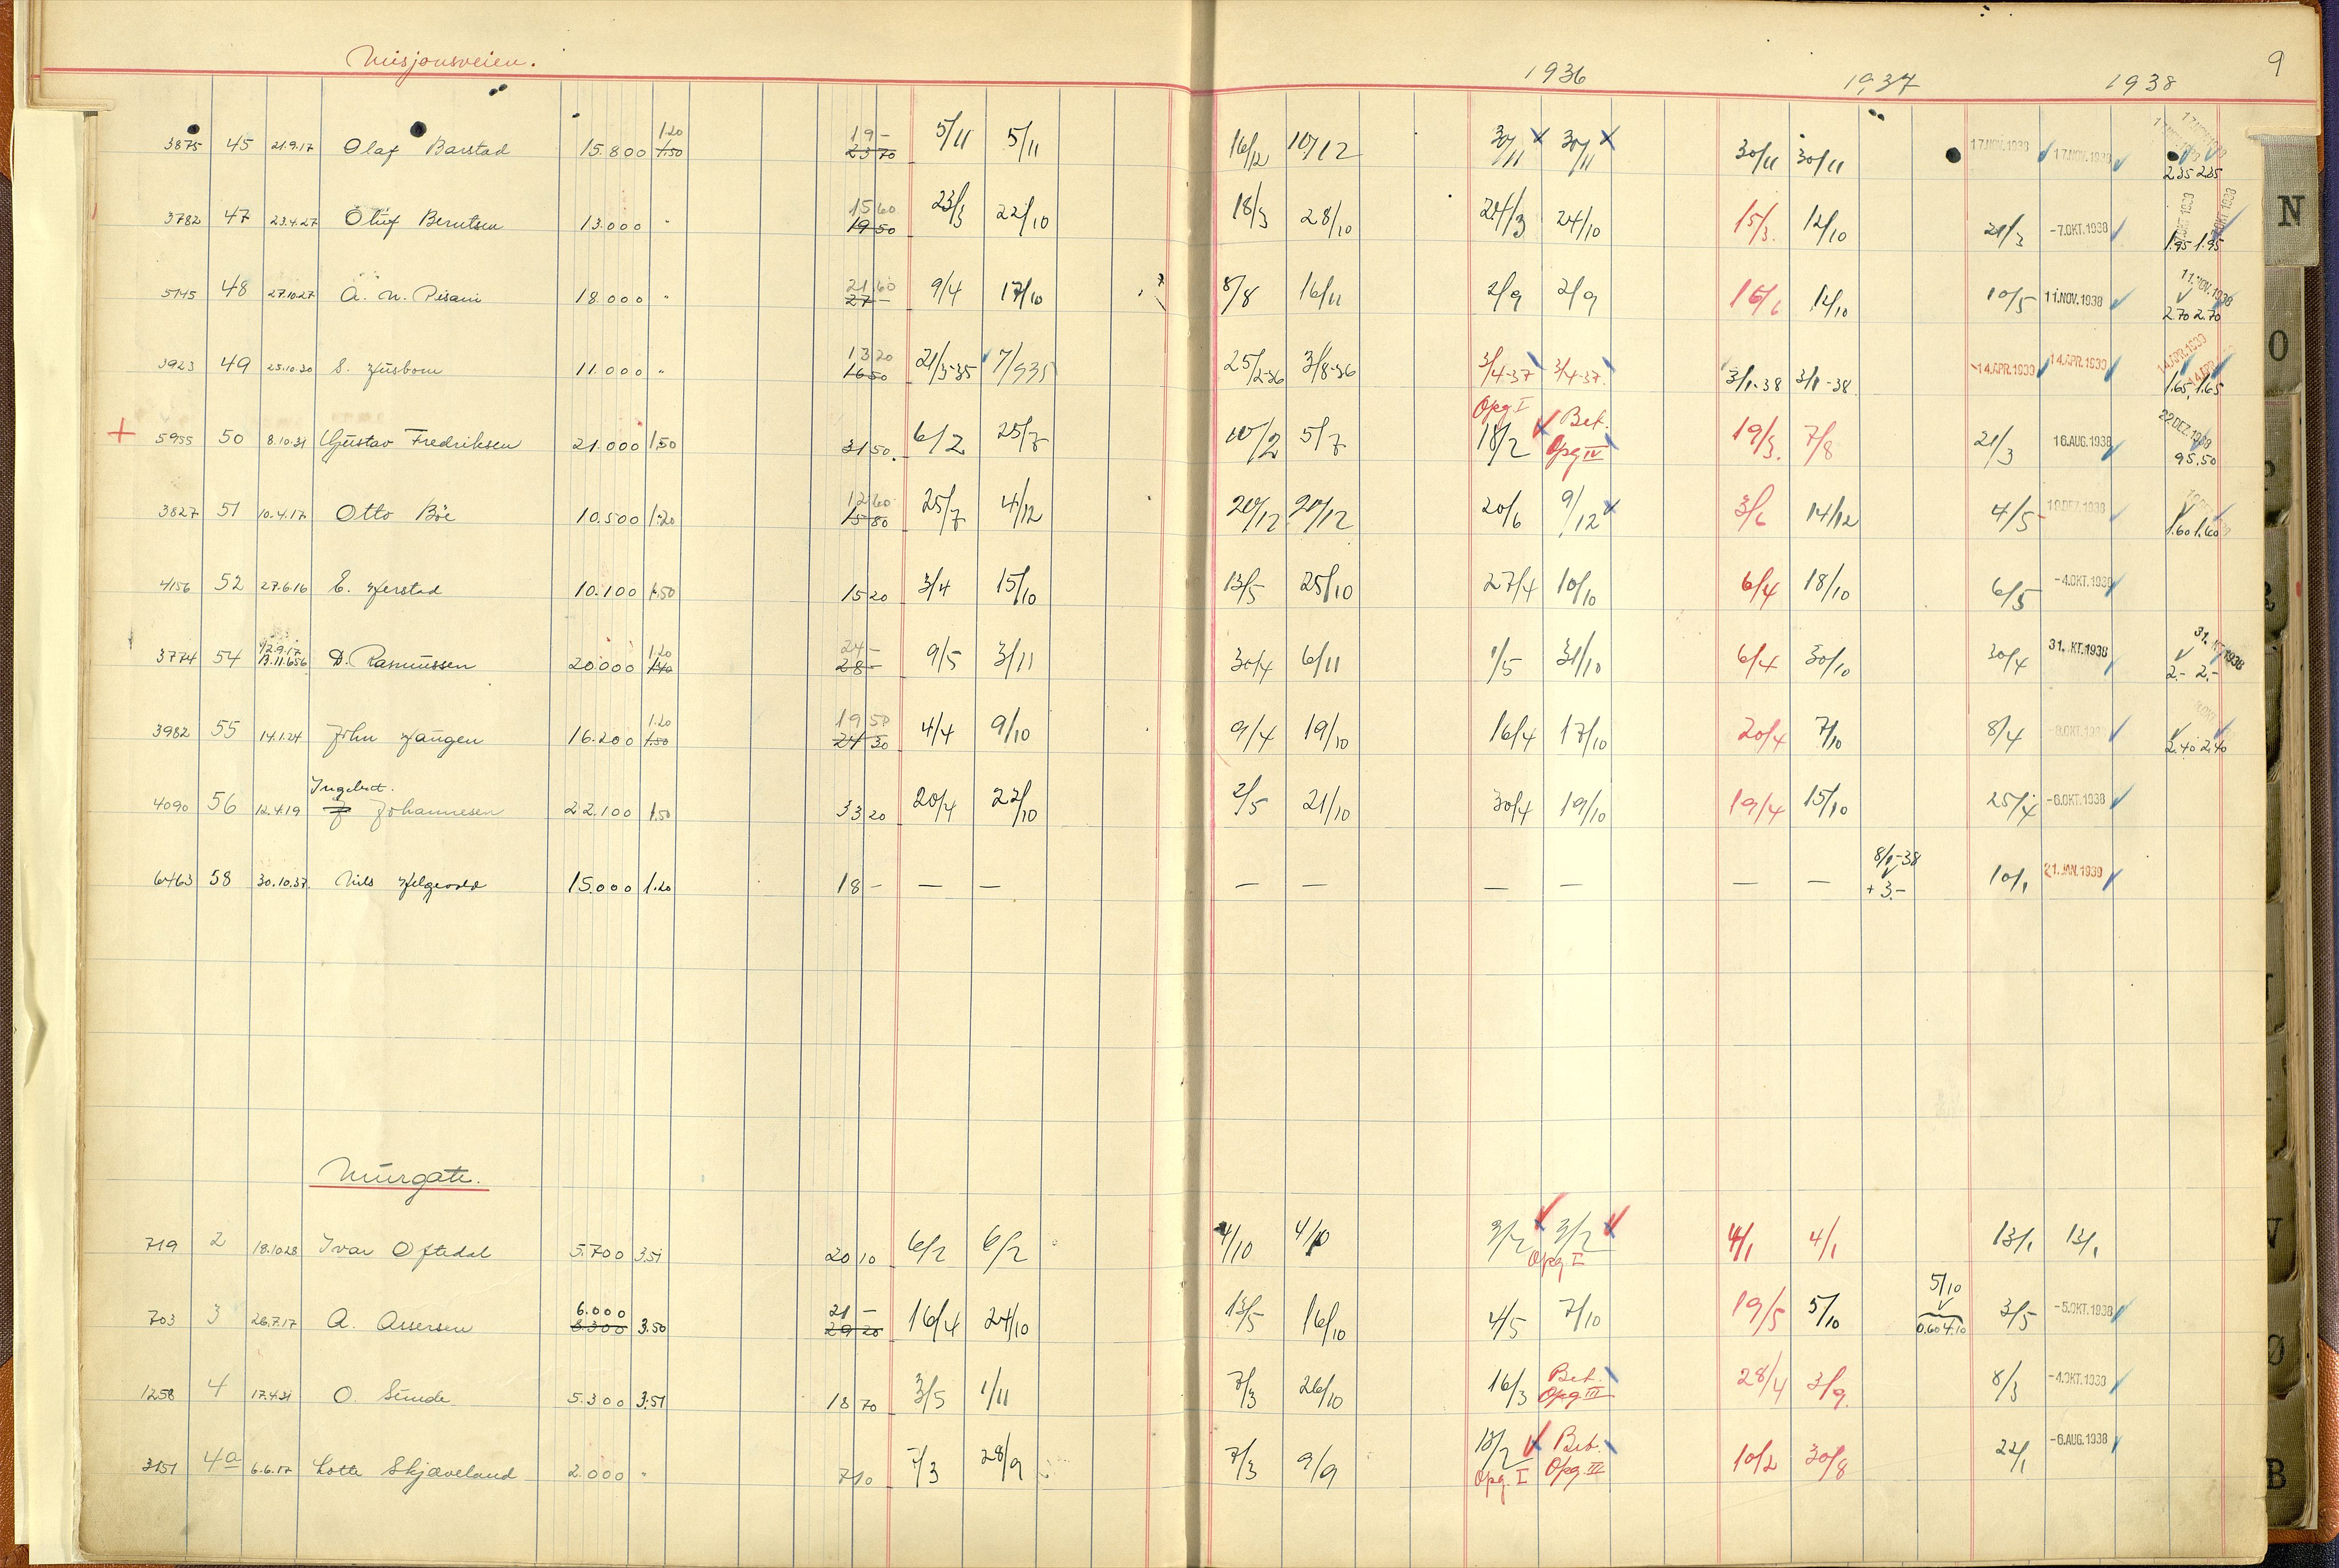 Misjonsveien.
1936 1937 1938 9
3875 45 21.9.17 Olaf Barstad 15.800 1.20 1.50 19 - 23 70 5/11 5/11 16/12 10/12 30/11 x 30/11 x 30/11 30/11 17.NOV.1938 17.NOV.1938 17.NOV.1938 17.NOV.1938 2.35 2.35
3782 47 23.4.27 Oluf Berntsen 13.000 " 15 60 19 50 23/3 22/10 18/3 28/10 24/3 24/10 15/3. 12/10 21/3 -7.OKT.1938 1.95 1.95
5145 48 27.10.27 A. N. Pisani 18.000 " 21 60 27 - 9/4 17/10 8/8 16/11 2/9 2/9 16/6 12/10 10/5 11.NOV.1938 11.NOV.1938 2.70 2.70
3923 49 25.10.30 S. Husbom 11.000 " 13 20 16 50 21/3-35 7/9 35 25/2-36 3/8-36 3/4-37 3/4-37. 3/1-38 3/1-38 14.APR.1939 14.APR.1939 14.APR.1939 14.APR.1939 1.65 1.65
+ 5955 50 8.10.31 Gustav Fredriksen 21.000 1.50 31 50. 6/2 25/7 10/2 5/7 Opg I 18/2 Bet. Opg IV 19/3. 7/8 21/3 16.AUG.1938 22.DEZ.1938 95.50
3827 51 10.4.17 Otto Böe 10.500 1.20 12 60 15 80 25/7 4/12 20/12 20/12 20/6 9/12 x 3/6 14/12 4/5 19.DEZ.1938 1.60 1.60
4156 52 27.6.16 E. Herstad 10.100 1.50 15 20 3/4 15/10 13/5 25/10 27/4 10/10 6/4 18/10 6/5 -4.OKT.1938
3774 54 D. Rasmussen 20.000 1.20 1.40 24 - 28 - 9/5 3/11 30/4 6/11 1/5 31/10 6/4 30/10 30/4 31. KT.1938 31. KT.1938 2.- 2.-
3982 55 14.1.24 John Haugen 16.200 1.20 1.50 19 50 24 30 4/4 9/10 9/4 19/10 16/4 17/10 20/4 7/10 8/4 -8.OKT.1938 2.40 2.40
Ingebrt.
4090 56 12.4.19 J Johannesen 22.100 1.50 33 20 20/4 22/10 2/5 21/10 30/4 19/10 19/4 15/10 25/4 -6.OKT.1938
6463 58 30.10.37. Nils Helgevold 15.000 1.20 18 - — — — — — — — — 8/1-38 + 3.- 10/1 21.JAN.1939
Murgate.
719 2 18.10.28 Ivar Oftedal 5.700 3.51 20 10 6/2 6/2 4/10 4/10 3/2 3/2 Opg I 4/1 4/1 13/1 13/1
703 3 26.7.17 A. Assersen 6.000 8.300 3.50 21 - 29 20 16/4 24/10 13/5 16/10 4/5 7/10 19/5 5/10 5/10 0.60 4.10 3/5 -5.OKT.1938
1258 4 17.4.31 O. Sunde 5.300 3.51 18 70 3/5 1/11 7/3 26/10 16/3 Bet. Opg III 28/4 3/9. 8/3 -4.OKT.1938
3151 4a 6.6.17 Lotte Skjæveland 2.000 " 7 10 7/3 28/9 7/3 9/9 18/2 Opg. I Bet. Opg. III 10/2 30/8 22/1 -6.AUG.1938
N
O
B